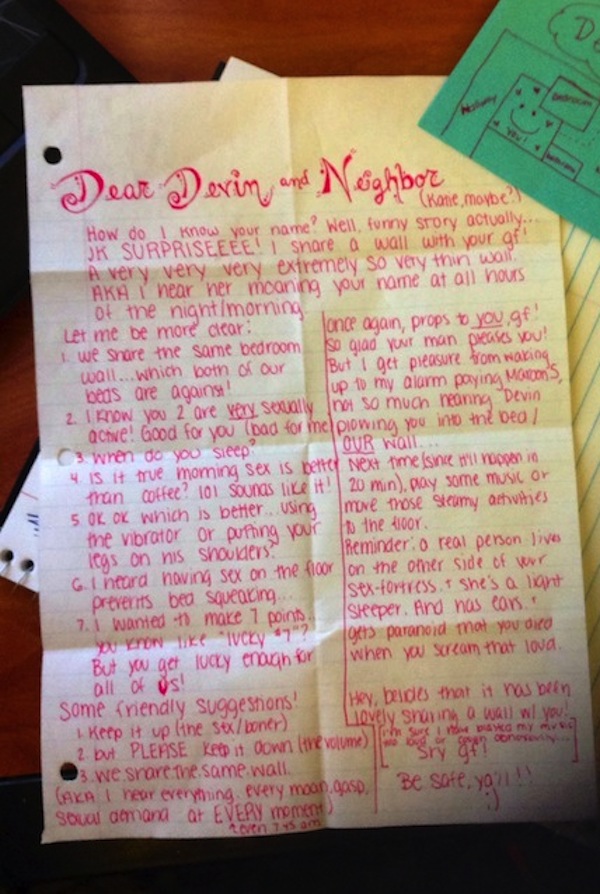 Dear Devin and Neighbor
(Katie, maybe?)
How do I know your name? Well, funny story actually...
JK SURPRISEEEE! I share a wall with your gf!
A very very very extremely so very thin wall.
AKA I hear her moaning your name at all hours
of the night/morning!
Let me be more clear:
1. we share the same bedroom
wall...which both of our
beds are against!
2. I know you 2 are very sexually
active! Good for you (bad for me)
3. when do you sleep?
4. is it true morning sex is better
than coffee? 101 sounds like it!
5. OK OK which is better...using
the vibrator or putting your
legs on his shoulders?
6. I heard having sex on the floor
prevents bed squeaking...
7. I wanted to make 7 points...
you know like "lucky #7"?
But you get lucky enough for
all of us!
Some friendly suggestions!
1. Keep it up (the sex/boner)
2. but PLEASE keep it down (the volume)
3. we share the same wall.
(AKA I hear everything, every moan, gasp,
sexual demand at EVERY moment)
even 7:45 am
once again, props to you, gf!
so glad your man pleases you!
But I get pleasure from waking
up to my alarm playing Maroon 5,
not so much hearing Devin
plowing you into the bed/
OUR wall...
Next time (since it'll happen in
20 min), play some music or
move those steamy activities
to the floor.
Reminder: a real person lives
on the other side of your
sex-fortress. + she's a light
sleeper. And has ears. +
gets paranoid that you died
when you scream that loud.
Hey, besides that it has been
lovely sharing a wall w/ you!
[I'm sure I have blasted my music
too loud or sang
Sry gf!]
Be safe, ya'll!!
:)
De
Hallway
Bedroom
YOU!